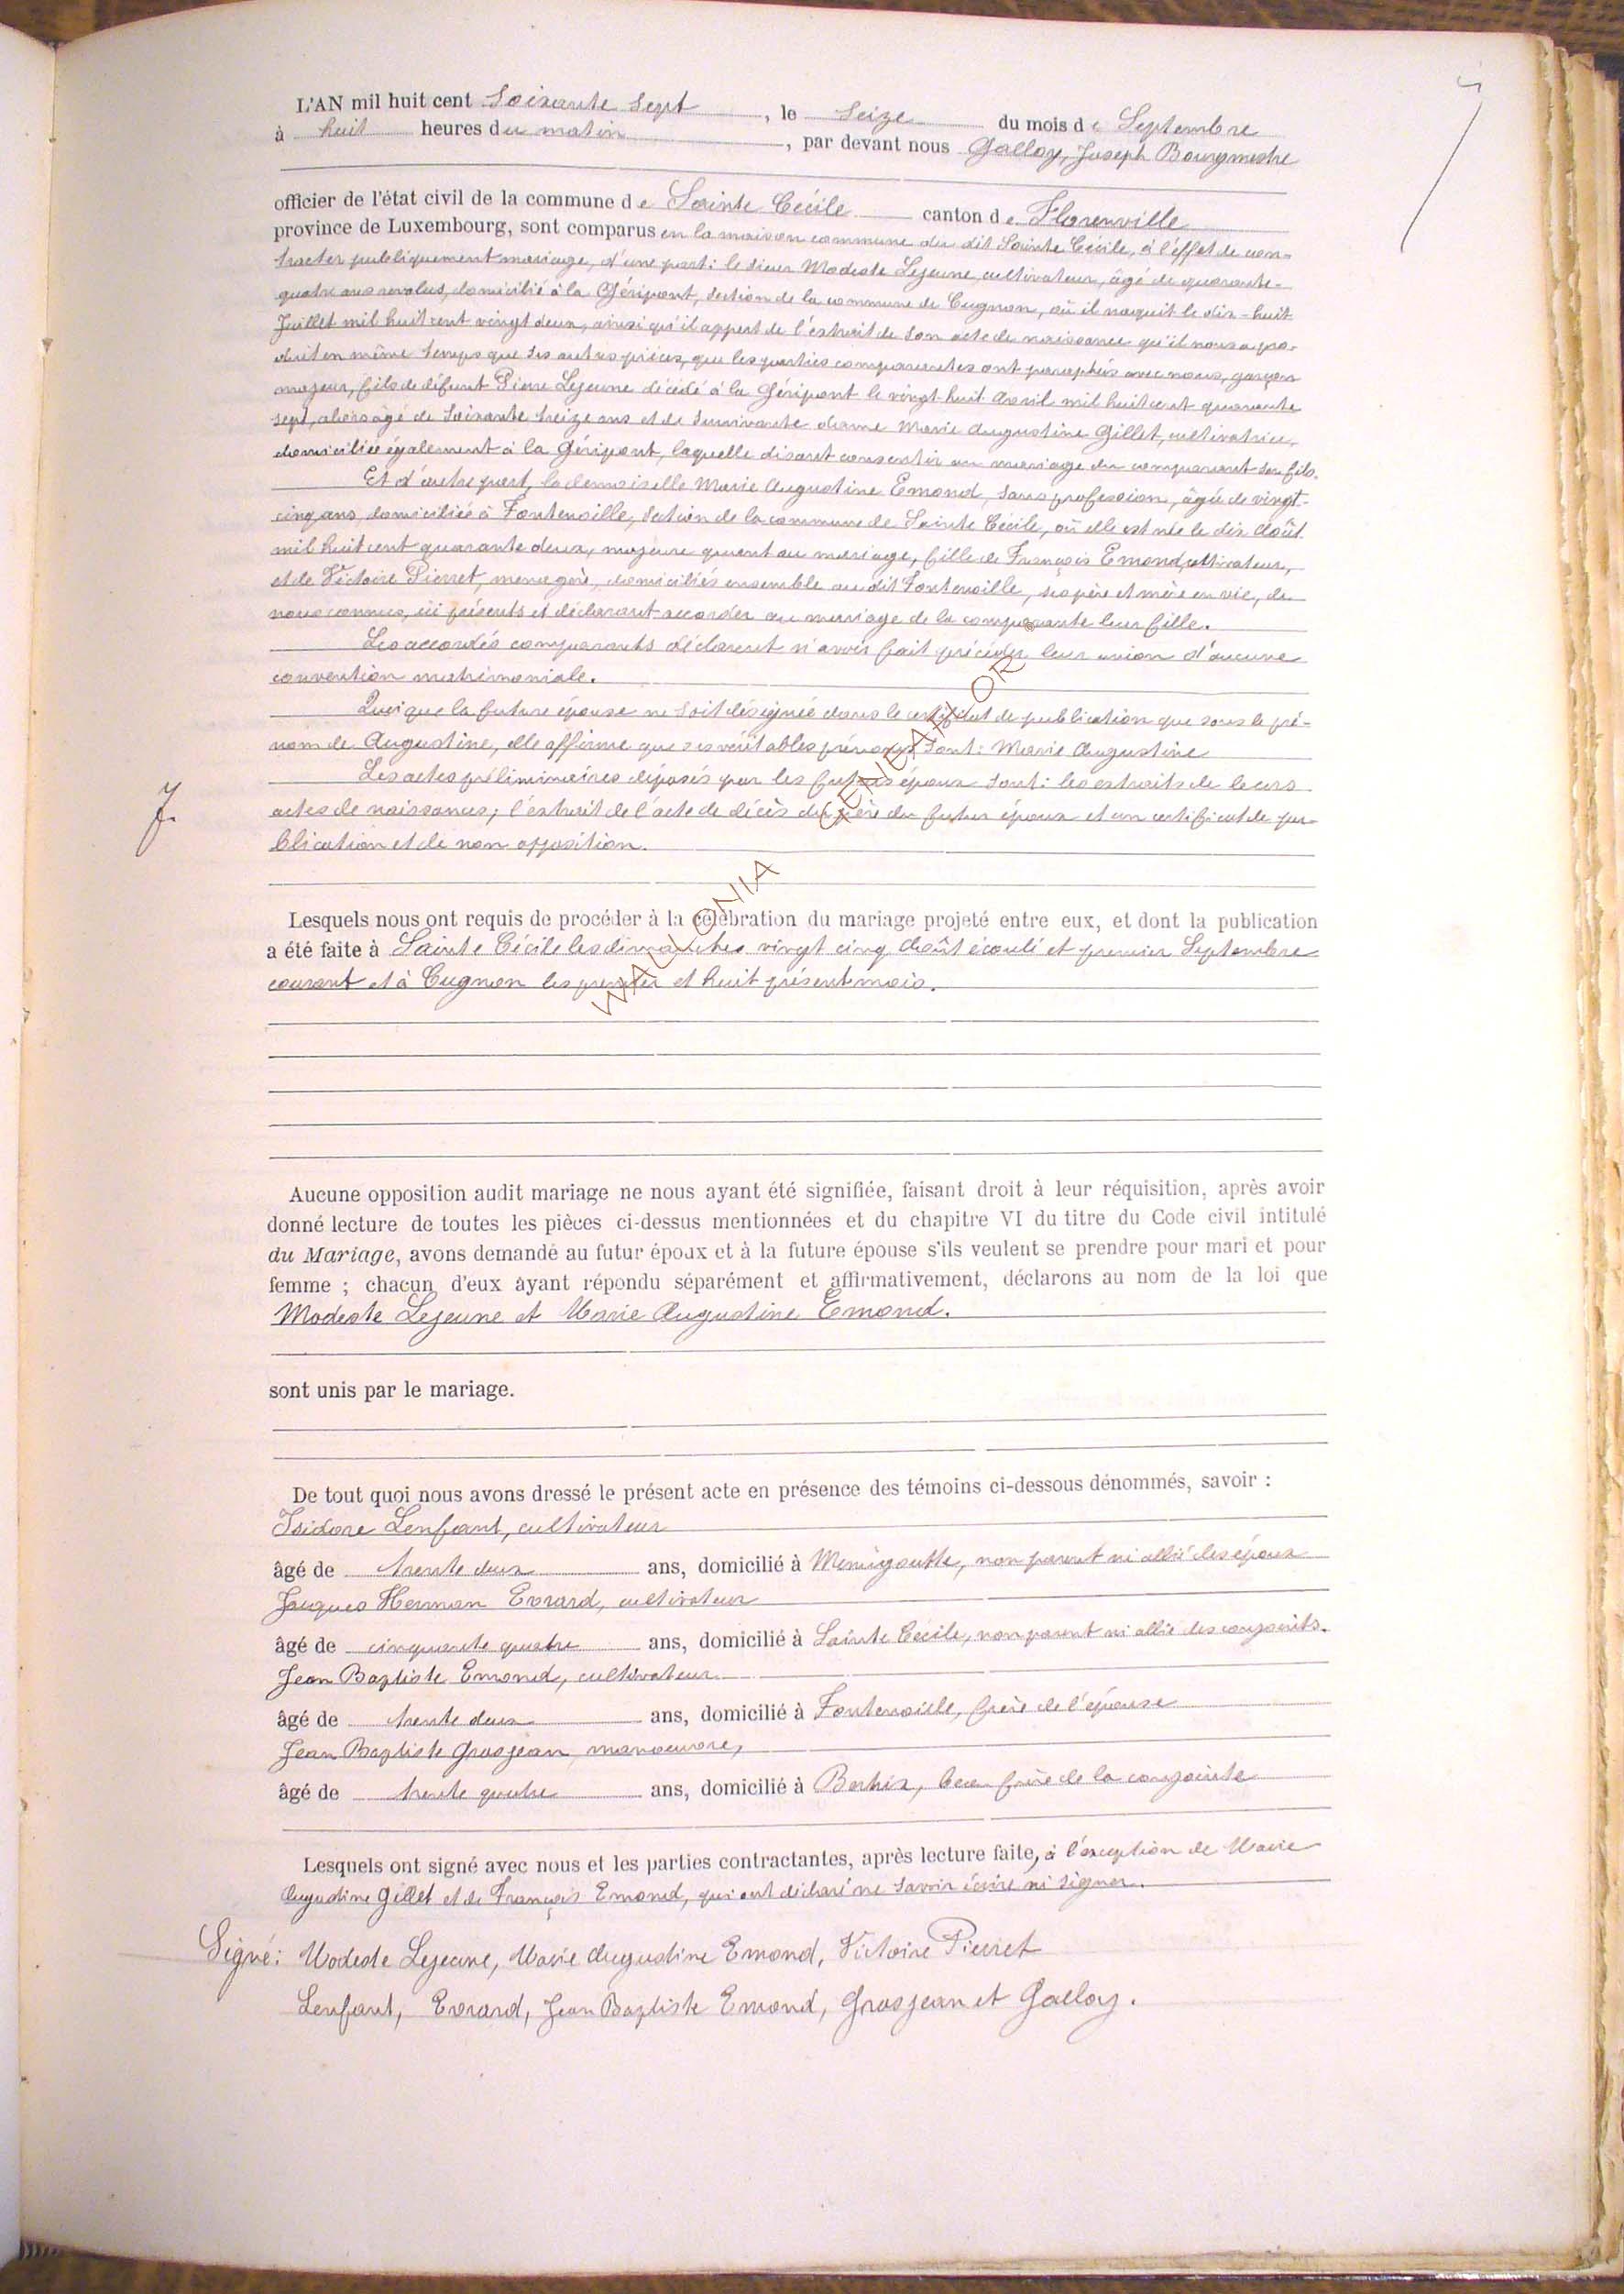 L'AN mil huit cent Soixante Sept, le Seize du mois de Septembre
à huit heures du matin, par devant nous Galloy, Joseph Bourgmestre
officier de l'état civil de la commune de Sainte Cécile canton de Florenville
province de Luxembourg, sont comparus en la maison commune du dit Sainte Cécile, à l'effet de con-
tracter publiquement mariage, d'une part: le sieur Modeste Lejeune, cultivateur, âgé de quarante-
quatre ans revolus, domicilié à la Géripont, Section de la commune de Cugnon, où il naquit le dix-huit
Juillet mil huit cent vingt deux, ainsi qu'il appert de l'extrait de son acte de naissance qu'il nous a pro-
duit en même temps que ses autres pièces, que les parties comparantes ont paraphés avec nous, garçon
majeur, fils de défunt Pierre Lejeune décédé à la Géripont le vingt-huit Avril mil huit cent quarante
sept, alors âgé de Soixante treize ans et de Survivante dame Marie Augustine Gillet, cultivatrice,
domiciliée également à la Géripont, laquelle disant consentir au mariage du comparant son fils.
Et d'autre part, la demoiselle Marie Augustine Emond, Sans profession, âgée de vingt-
cinq ans, domiciliée à Fontenoille, Section de la commune de Sainte Cécile, où elle est née le dix Août
mil huit cent quarante deux, majeure quant au mariage, fille de François Emond, cultivateur,
et de Victoire Pierret, menagère, domiciliés ensemble au dit Fontenoille, ses père et mère en vie, de
nous connus, ici présents et déclarant accorder au mariage de la comparante leur fille.
Les accordés comparants déclarent n'avoir fait précéder leur union d'aucune
convention matrimoniale.
Quoique la future épouse ne soit désignée dans le certificat de publication que sous le pré-
nom de Augustine, elle affirme que ses véritables prénoms sont: Marie Augustine
Les actes préliminaires déposés par les futurs époux sont: les extraits de leurs
actes de naissances; l'extrait de l'acte de décès du père du futur époux et un certificat de pu-
blication et de non opposition.
7.
WALLONIA GENEALOR ®
Lesquels nous ont requis de procéder à la célébration du mariage projeté entre eux, et dont la publication
a été faite à Sainte Cécile les dimanches vingt cinq Août écoulé et premier Septembre
courant et à Cugnon les premier et huit présent mois.
Aucune opposition audit mariage ne nous ayant été signifiée, faisant droit à leur réquisition, après avoir
donné lecture de toutes les pièces ci-dessus mentionnées et du chapitre VI du titre du Code civil intitulé
du Mariage, avons demandé au futur époux et à la future épouse s'ils veulent se prendre pour mari et pour
femme ; chacun d'eux ayant répondu séparément et affirmativement, déclarons au nom de la loi que
Modeste Lejeune et Marie Augustine Emond.
sont unis par le mariage.
De tout quoi nous avons dressé le présent acte en présence des témoins ci-dessous dénommés, savoir :
Isidore Lenfant, cultivateur
âgé de trente deux ans, domicilié à Menugoutte, non parent ni allié des époux
Jacques Herman Evrard, cultivateur
âgé de cinquante quatre ans, domicilié à Sainte Cécile, non parent ni allié des conjoints.
Jean Baptiste Emond, cultivateur
âgé de trente deux ans, domicilié à Fontenoille, frère de l'épouse
Jean Baptiste Grosjean, manoeuvre,
âgé de trente quatre ans, domicilié à Bertrix, beau frère de la conjointe
Lesquels ont signé avec nous et les parties contractantes, après lecture faite, à l'exception de Marie
Augustine Gillet et de François Emond, qui ont déclaré ne savoir écrire ni signer.
Signé: Modeste Lejeune, Marie Augustine Emond, Victoire Pierret
Lenfant, Evrard, Jean Baptiste Emond, Grosjean et Galloy.